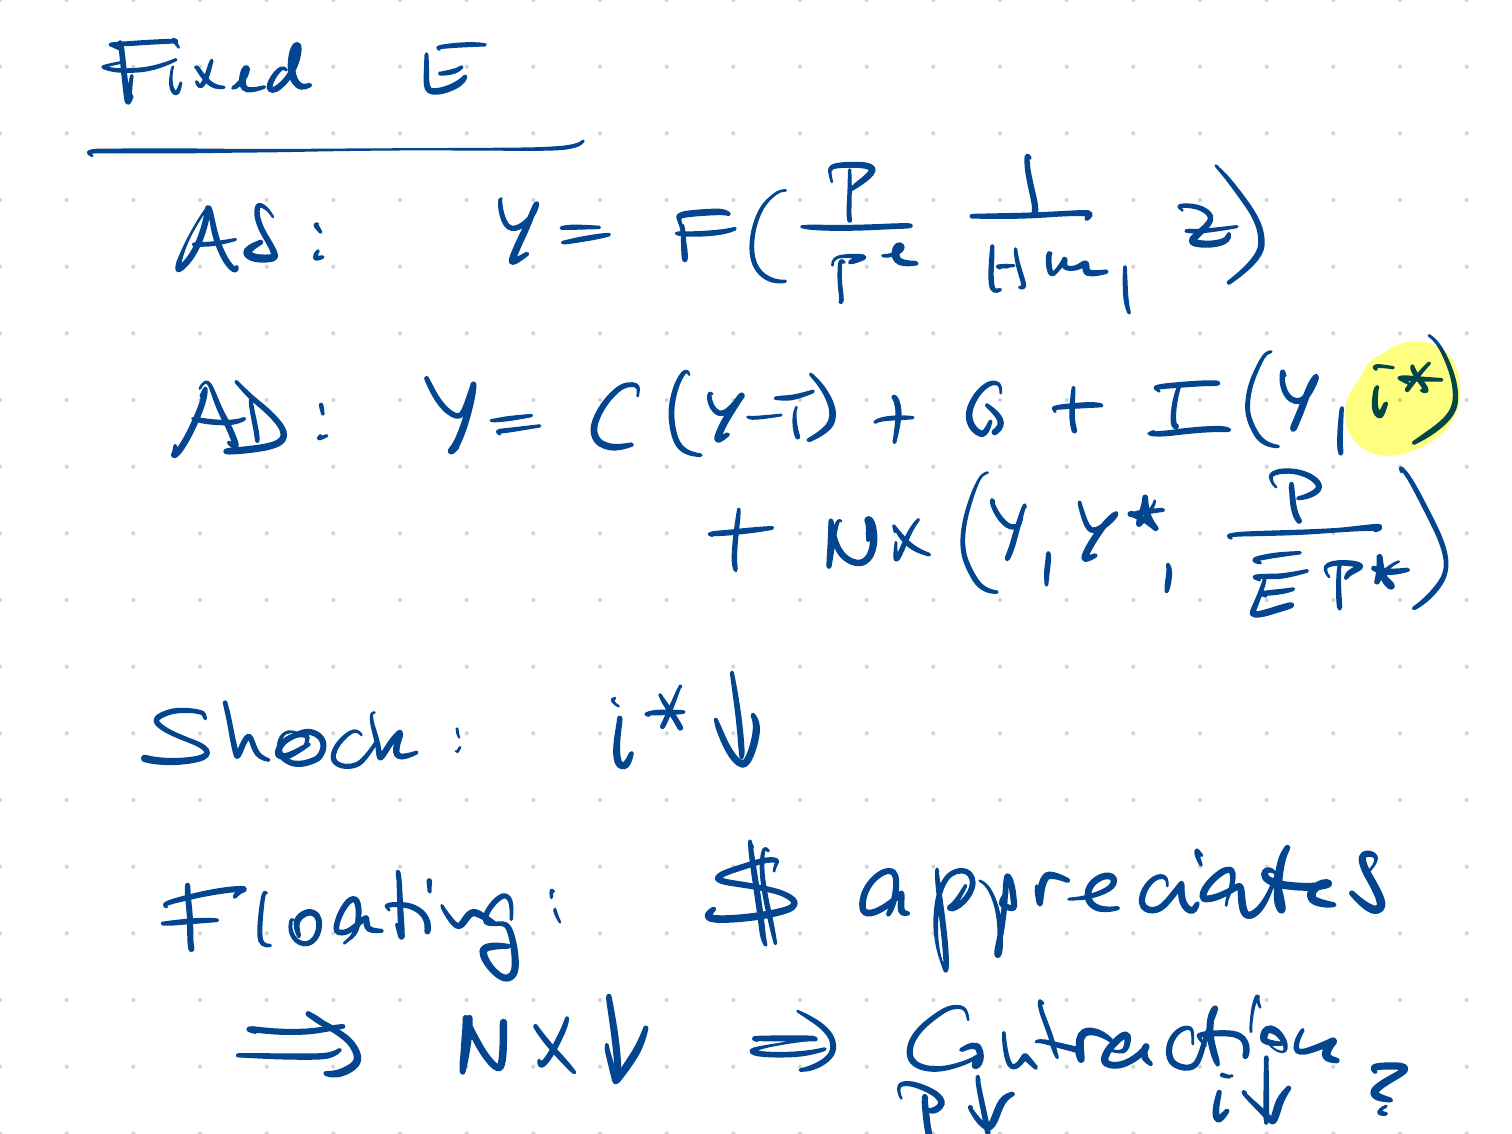 Fixed E
AS: Y = F(P/P^e 1/(1+m), z)
AD: Y = C(Y-T) + G + I(Y, i*)
+ NX (Y, Y*, P/(E P*))
Shock: i* ↓
Floating: $ appreciates
⇒ NX ↓ ⇒ Contraction
P ↓ i ↓ ?